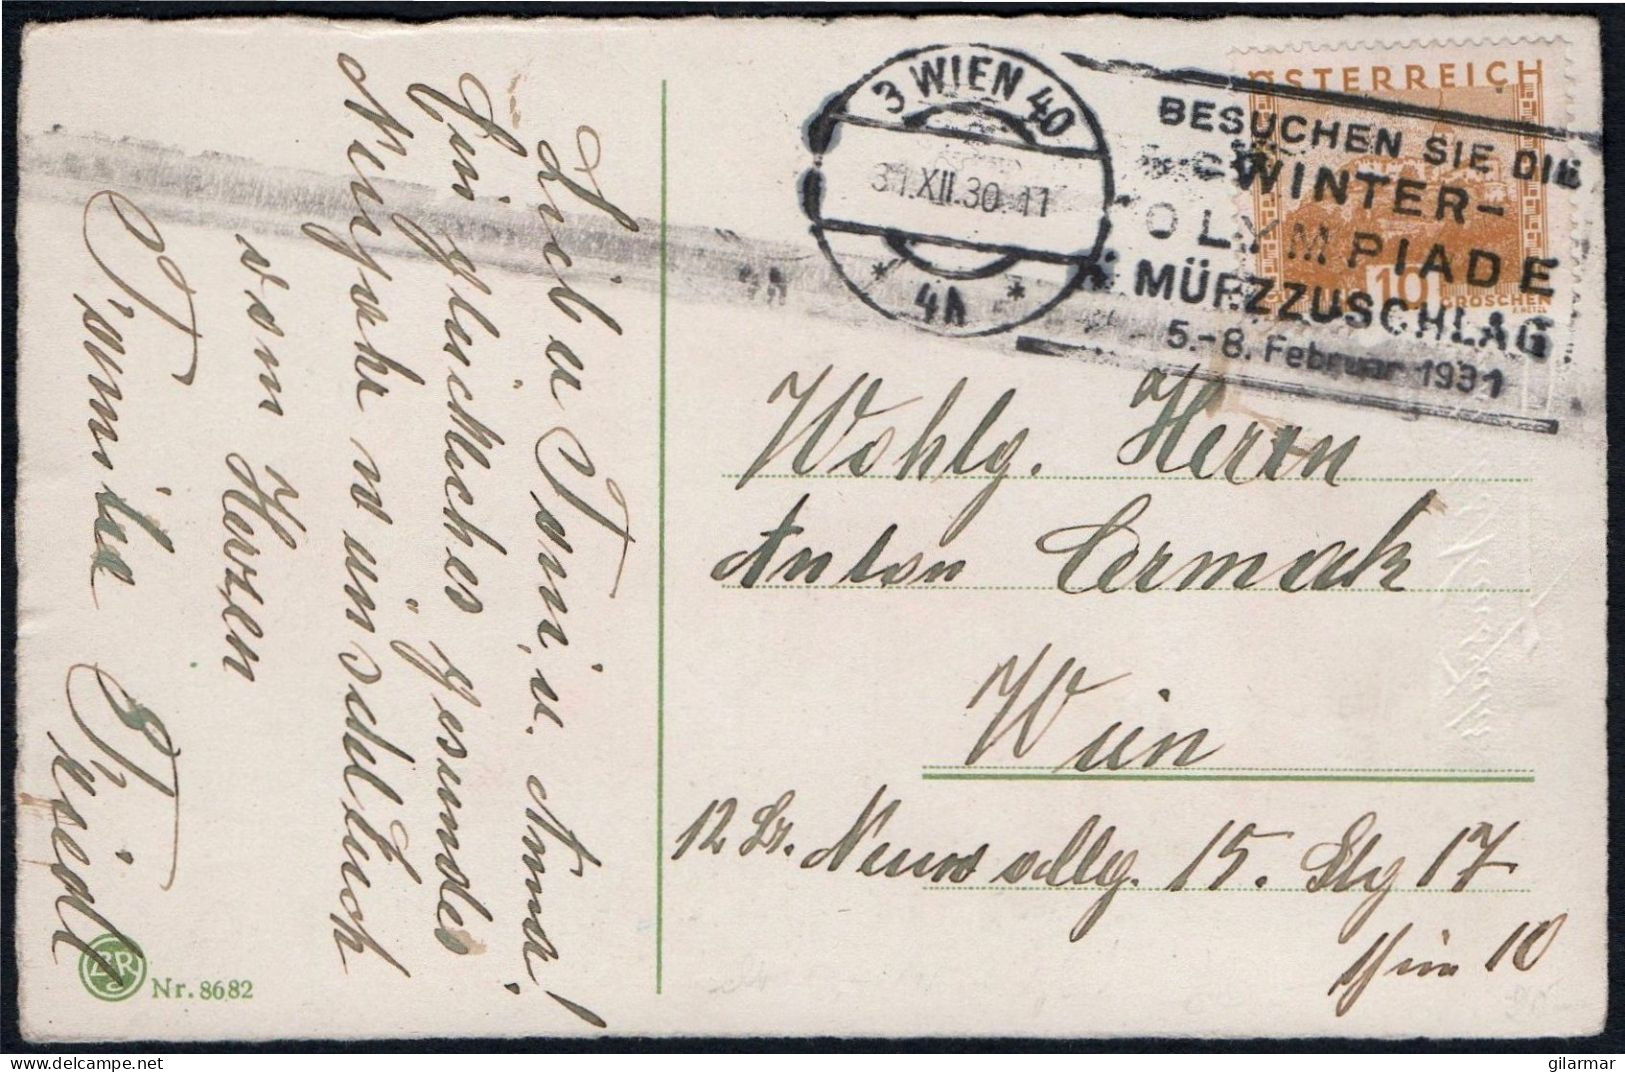 ÖSTERREICH
10
GROSCHEN
3 WIEN 40
31.XII.30.11
* 4h *
BESUCHEN SIE DIE
WINTER-
OLYMPIADE
MÜRZZUSCHLAG
5.-8. Februar 1931
Lieb u Toni, u. Anna!
Ein glückliches gesundes
Neujahr wünscht Euch
vom Herzen
Familie Friedl
Wohlg. Herrn
Anton Cermak
Wien
12 Neuwallg. 15. Stg 17
Wien
BR
Nr. 8682
delcampe.net
gilarmar